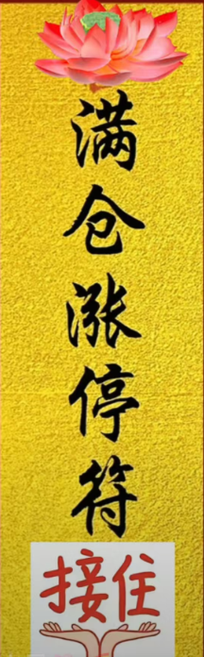 满仓涨停符
接住